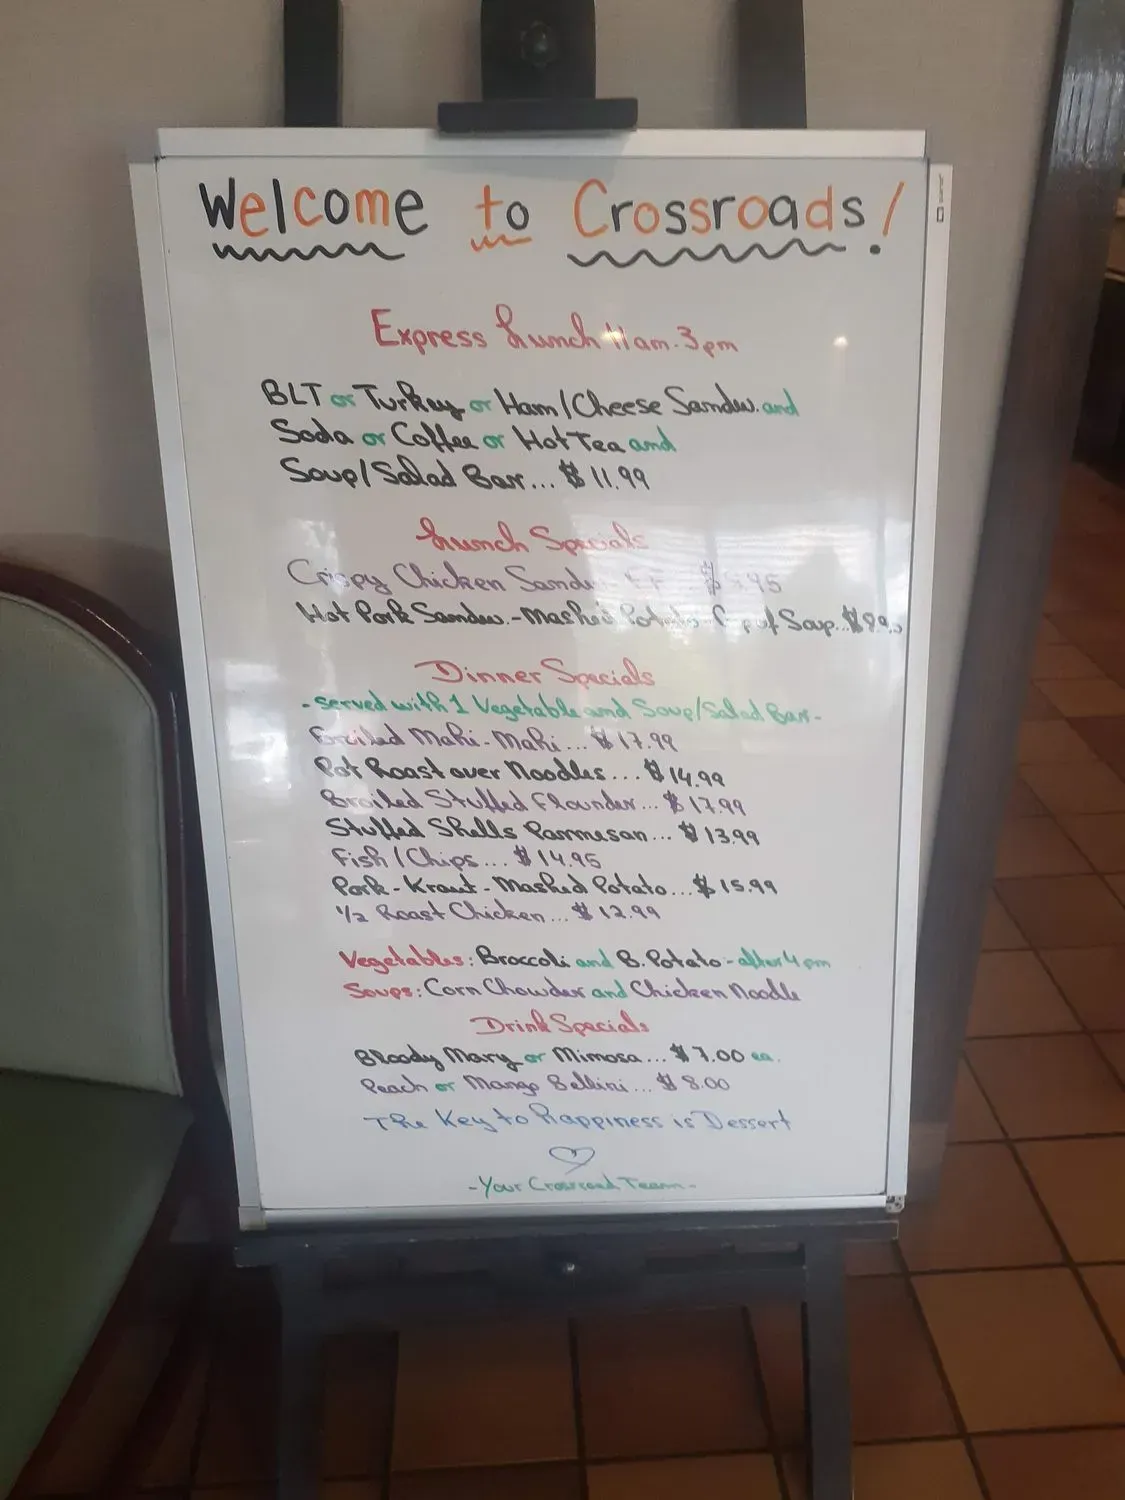 Welcome to Crossroads!
Express Lunch 11am-3pm
BLT or Turkey or Ham/Cheese Sandw. and
Soda or Coffee or Hot Tea and
Soup/Salad Bar... $11.99
Lunch Specials
Crispy Chicken Sandw - FF...
Hot Pork Sandw.-Mashed Potato-Cup of Soup...
Dinner Specials
-served with 1 Vegetable and Soup/Salad Bar-
Broiled Mahi-Mahi... $17.99
Pot Roast over Noodles... $14.99
Broiled Stuffed Flounder... $17.99
Stuffed Shells Parmesan... $13.99
Fish/Chips... $14.95
Pork-Kraut-Mashed Potato... $15.99
1/2 Roast Chicken... $12.99
Vegetables: Broccoli and B. Potato-after 4pm
Soups: Corn Chowder and Chicken Noodle
Drink Specials
Bloody Mary or Mimosa... $7.00 ea.
Peach or Mango Bellini... $8.00
The Key to happiness is Dessert
-Your Crossroad Team-